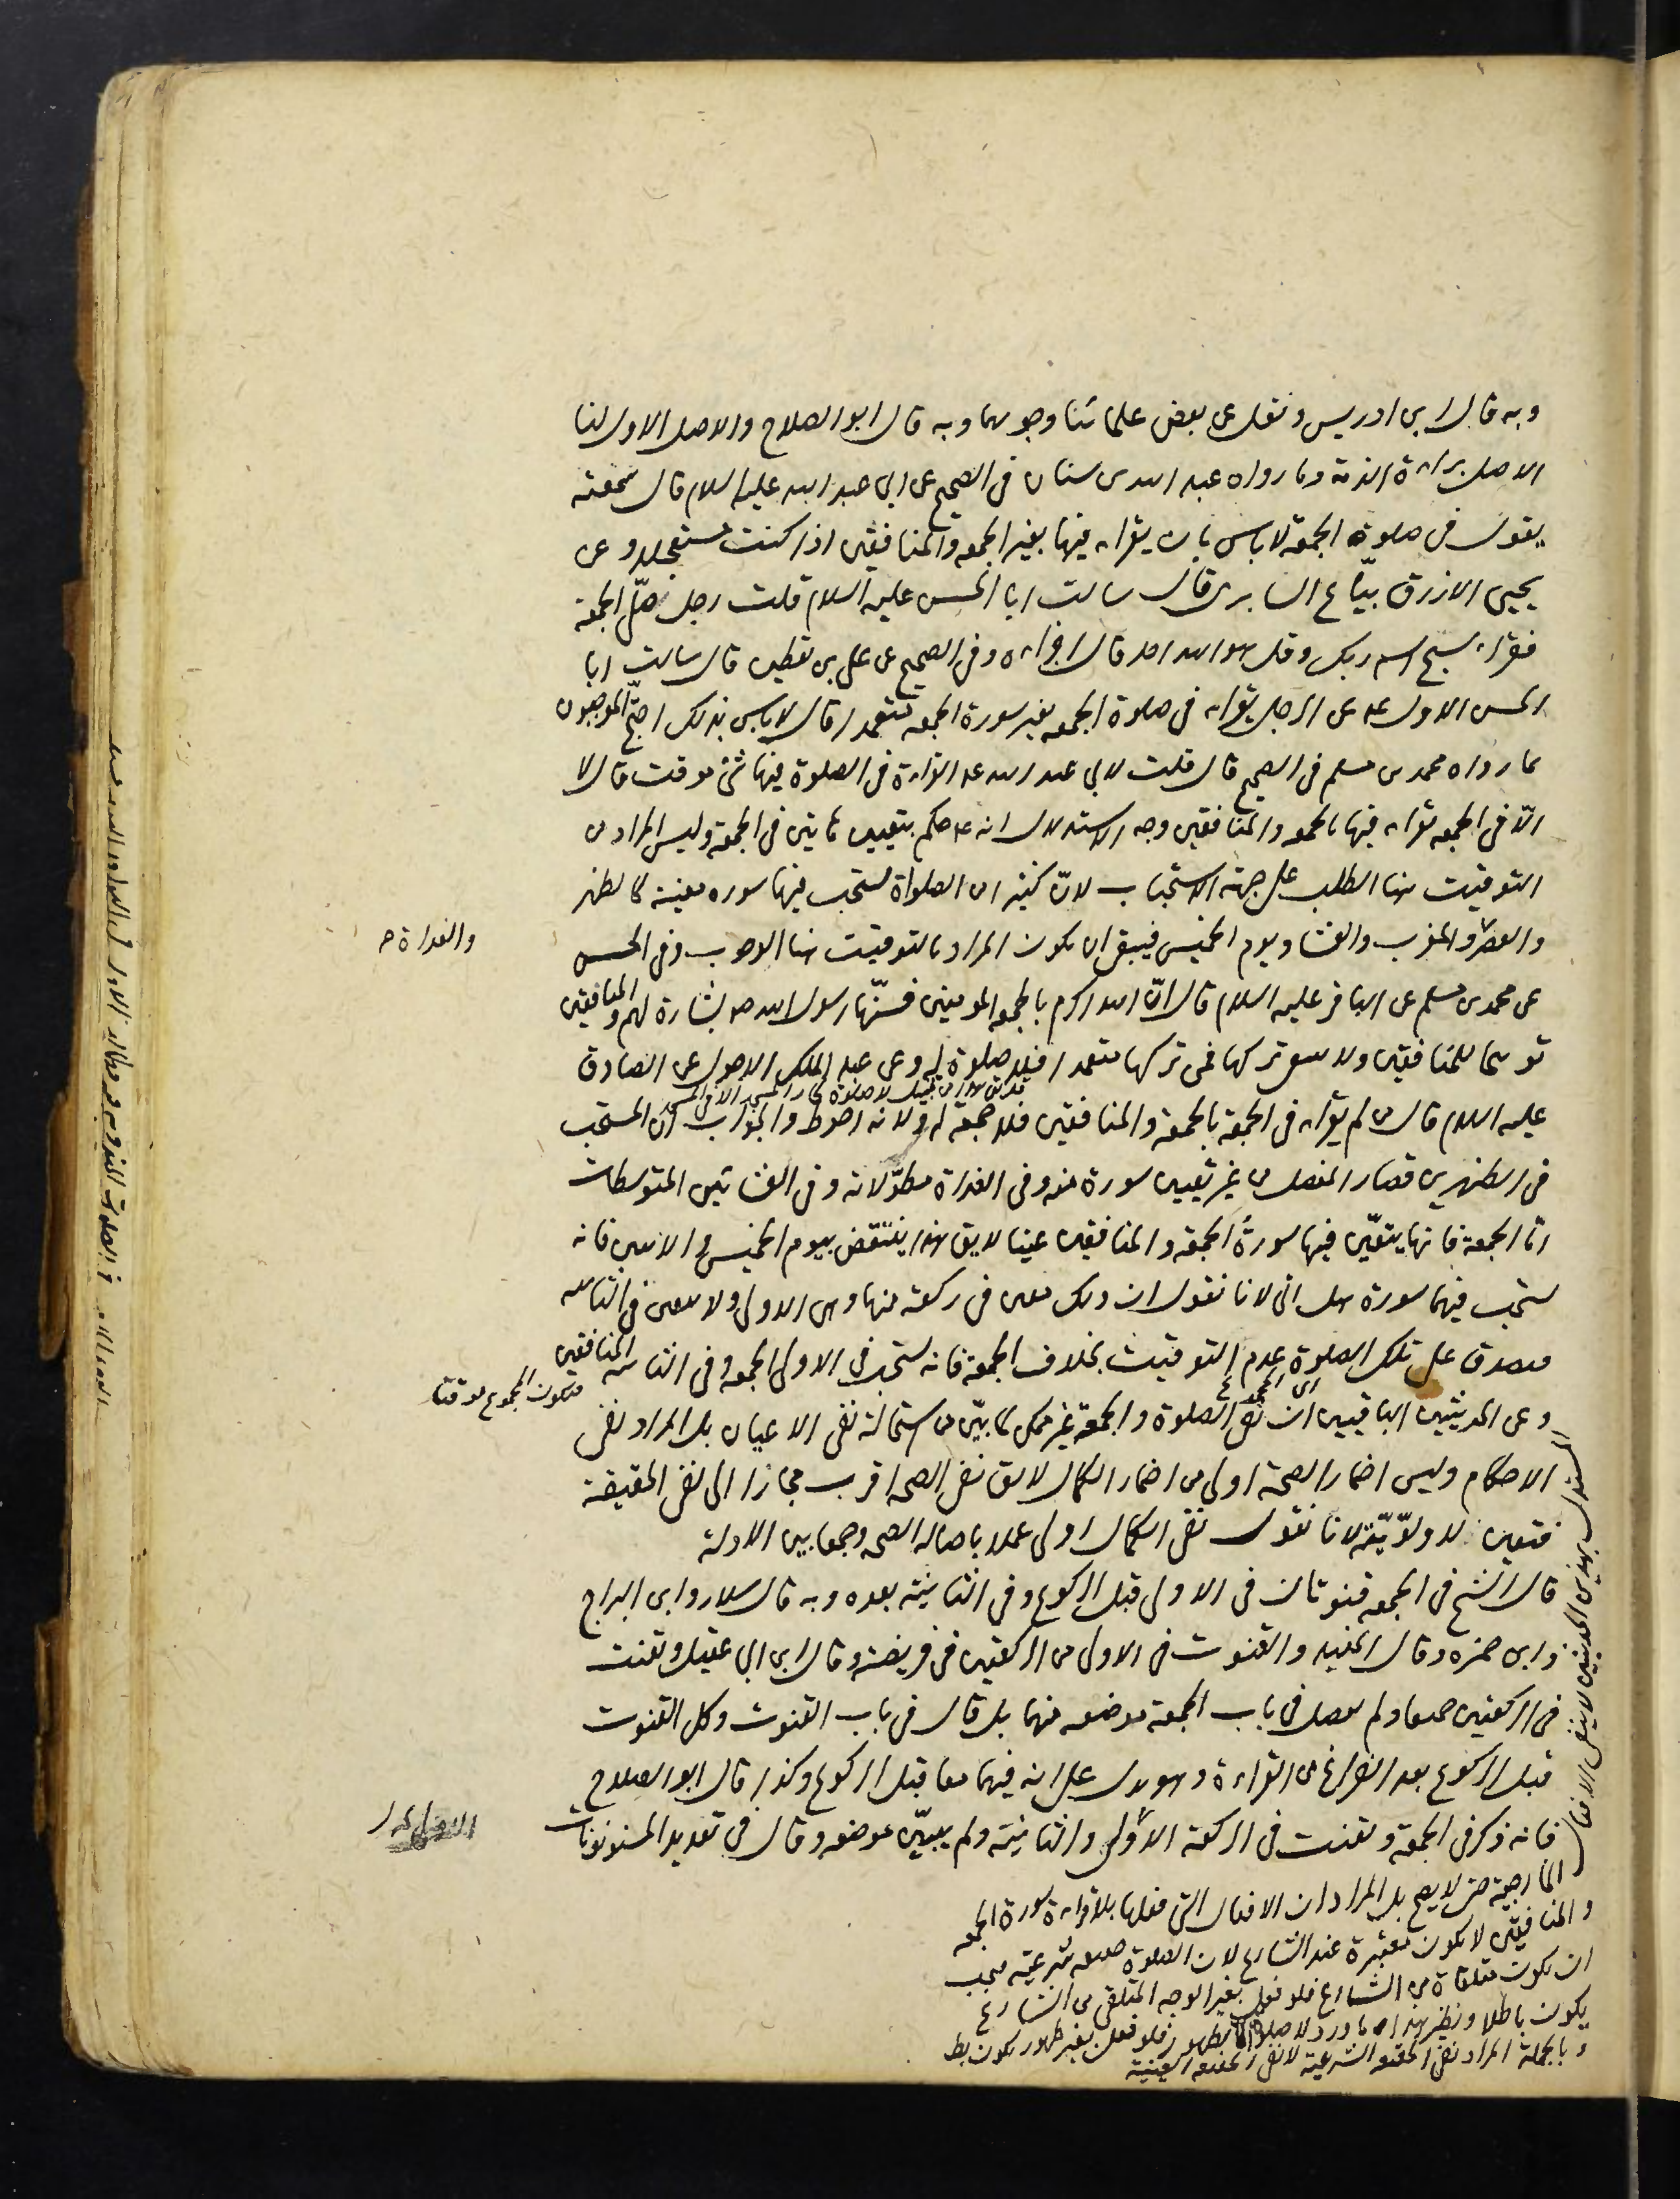 وبه قال ابن ادريس ونقل عن بعض علمائنا وجوبهما وبه قال ابو الصلاح والاصل الاول لنا
الاصل براءة الذمة وما رواه عبد الله بن سنان في الصحيح عن ابي عبد الله عليه السلام قال سمعته
يقول في صلوة الجمعة لا باس بان يقراء فيها بغير الجمعة والمنافقين اذا كنت مستعجلا وعن
يحيى الازرق بيّاع السابرى قال سالت ابا الحسن عليه السلام قلت رجل صلّى الجمعة
فقراء سبح اسم ربك وقل هو الله احد قال اجزاءه وفي الصحيح عن علي بن يقطين قال سالت ابا
الحسن الاول عه عن الرجل يقراء في صلوة الجمعه بغير سورة الجمعه متعمدا قال لا باس بذلك احتجّ الموجبون
بما رواه محمد بن مسلم في الصحيح قال قلت لابي عبد الله عه القراءة في الصلوة فيها شئ موقت قال لا
الّا في الجمعه تقراء فيها بالجمعه والمنافقين وجه الاستدلال انه عه حكم بتعيين هاتين في الجمعة وليس المراد من
التوقيت هنا الطلب على جهة الاستحباب لانّ كثيرا من الصلواة تستحب فيها سوره معينة كالظهر
والعصر والمغرب والعشا ويوم الخميس فيبقى ان يكون المراد بالتوقيت هنا الوجوب وفي الحسن
والغداة صح
عن محمد بن مسلم عن الباقر عليه السلام قال انّ الله اكرم بالجمعه المومنين فسنّها رسول الله ص بشارة لهم والمنافقين
توبيخا للمنافقين ولا ينبغى تركها فمن تركها متعمدا فلا صلوة له وعن عبد الملك الاحول عن الصادق
عليه السلام قال من لم يقراء في الجمعة بالجمعة والمنافقين فلا جمعة له ولانه احوط والجواب انّ المستحب
في الظهرين قصار المفصل من غير تعيين سورة منه وفي الغداة مطوّلاته وفي العشائين المتوسطات
امّا الجمعة فانها يتعيّن فيها سورةُ الجمعة والمنافقين عينا لا يق هذا ينتقض بيوم الخميس والاثنين فانه
يستحب فيهما سورة هل اتى لانا نقول ان ذلك معين في ركعة منها وهي الاولى ولا يتعين في الثانيه
فيصدق على تلك الصلوة عدم التوقيت بخلاف الجمعة فانه يستحب في الاولى الجمعه وفي الثانيه المنافقين
فيكون المجموع موقتا
وعن الحديثين الباقيين ان نفى الصلوة والجمعة غير ممكن لما بيّن من استحالة نفى الاعيان بل المراد نفى
الاحكام وليس اضمار الصحة اولى من اضمار الكمال لا يق نفى الصحه اقرب مجازا الى نفى الحقيقة
فتعين للاولوّيّة لانا نقول نفى الكمال اولى عملا باصاله الصحه وجمعا بين الادلة
قال الشيخ في الجمعه قنوتان في الاولى قبل الركوع وفي الثانية بعده وبه قال سلار وابن البراج
وابن حمزه وقال المفيد والقنوت في الاولى من الركعتين في فريضته وقال ابن ابي عقيل وتقنت
في الركعتين جميعا ولم يفصل في باب الجمعة موضعه منهما بل قال في باب القنوت وكل القنوت
قبل الركوع بعد الفراغ من القراءة وهو يدل على انه فيهما معا قبل الركوع وكذا قال ابو الصلاح
فانه ذكر في الجمعة وتقنت في الركعة الاولى والثانية ولم يبيّن موضعه وقال في تعديد المسنونات
المستدل بهذين الحديثين لا ينفى الافعال
الخارجية حتى لا يصح بل المراد ان الافعال التي فعلها بلا قراءة سورة الجمعه
والمنافقين لا يكون معتبرة عند الشارع لان الصلوة حقيقه شرعيه فيجب
ان يكون متلقاة من الشارع فلو فعل بغير الوجه المتلقى من الشارع
يكون باطلا ونظير هذا ما ورد لا صلوة الا بطهور فلو فعل بغير طهور يكون بط
وبالجملة المراد نفى الحقيقه الشرعية لا نفى الحقيقه العينية